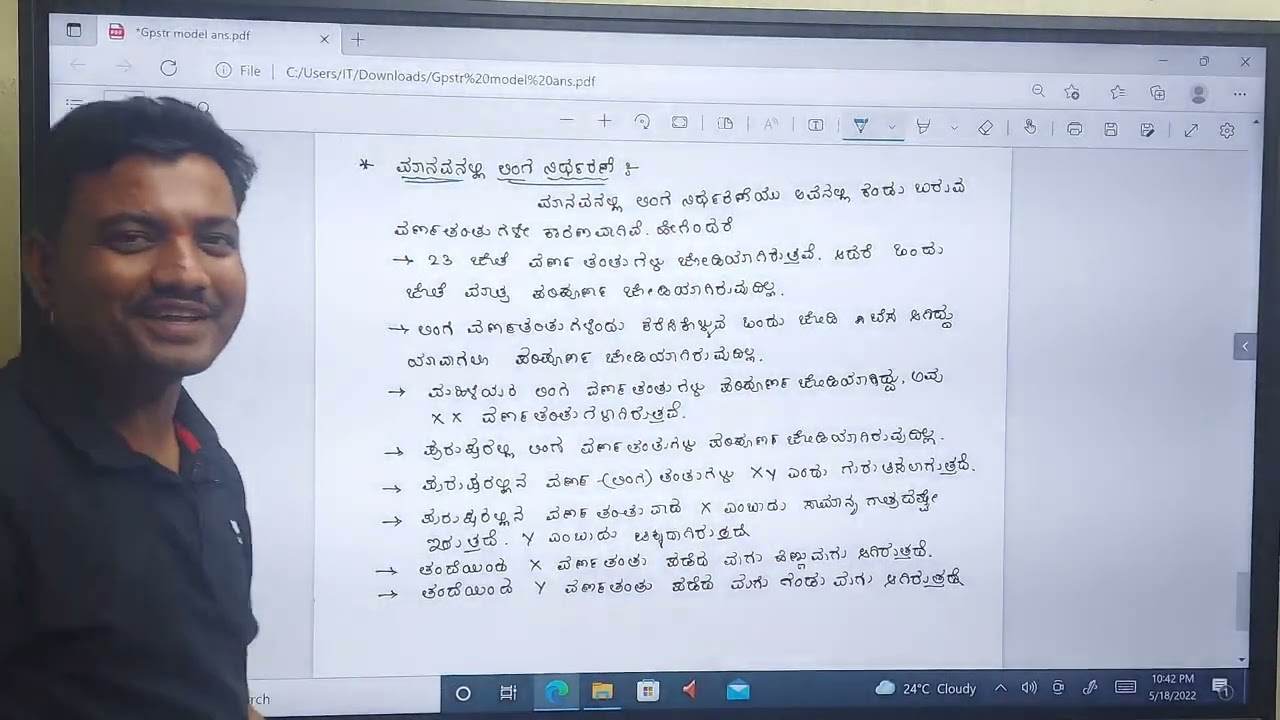 *Gpstr model ans.pdf
File | C:/Users/IT/Downloads/Gpstr%20model%20ans.pdf
* ಮಾನವನಲ್ಲಿ ಲಿಂಗ ನಿರ್ಧರಣೆ :-
ಮಾನವನಲ್ಲಿ ಲಿಂಗ ನಿರ್ಧರಣೆಯು ಅವನಲ್ಲಿ ಕಂಡು ಬರುವ
ವರ್ಣತಂತುಗಳೇ ಕಾರಣವಾಗಿವೆ. ಹೇಗೆಂದರೆ
→ 23 ಜೊತೆ ವರ್ಣತಂತುಗಳು ಜೋಡಿಯಾಗಿರುತ್ತವೆ. ಆದರೆ ಒಂದು
ಜೊತೆ ಮಾತ್ರ ಪರಿಪೂರ್ಣ ಜೋಡಿಯಾಗಿರುವುದಿಲ್ಲ.
→ ಲಿಂಗ ವರ್ಣತಂತುಗಳೆಂದು ಕರೆಸಿಕೊಳ್ಳುವ ಒಂದು ಜೋಡಿ ಆಗಿದ್ದು
ಯಾವಾಗಲೂ ಪರಿಪೂರ್ಣ ಜೋಡಿಯಾಗಿರುವುದಿಲ್ಲ.
→ ಮಹಿಳೆಯರ ಲಿಂಗ ವರ್ಣತಂತುಗಳು ಪರಿಪೂರ್ಣ ಜೋಡಿಯಾಗಿದ್ದು, ಅವು
XX ವರ್ಣತಂತುಗಳಾಗಿರುತ್ತವೆ.
→ ಪುರುಷರಲ್ಲಿ ಲಿಂಗ ವರ್ಣತಂತುಗಳು ಪರಿಪೂರ್ಣ ಜೋಡಿಯಾಗಿರುವುದಿಲ್ಲ.
→ ಪುರುಷರಲ್ಲಿನ ವರ್ಣ-(ಲಿಂಗ) ತಂತುಗಳು XY ಎಂದು ಗುರುತಿಸಲಾಗುತ್ತದೆ.
→ ಪುರುಷರಲ್ಲಿನ ವರ್ಣತಂತುವಾದ X ಎಂಬುದು ಸಾಮಾನ್ಯ ಗಾತ್ರದಷ್ಟೇ
ಇರುತ್ತದೆ. Y ಎಂಬುದು ಚಿಕ್ಕದಾಗಿರುತ್ತದೆ
→ ತಂದೆಯಿಂದ X ವರ್ಣತಂತು ಪಡೆದ ಮಗು ಹೆಣ್ಣುಮಗು ಆಗಿರುತ್ತದೆ.
→ ತಂದೆಯಿಂದ Y ವರ್ಣತಂತು ಪಡೆದ ಮಗು ಗಂಡು ಮಗು ಆಗಿರುತ್ತದೆ
24°C Cloudy
10:42 PM
5/18/2022